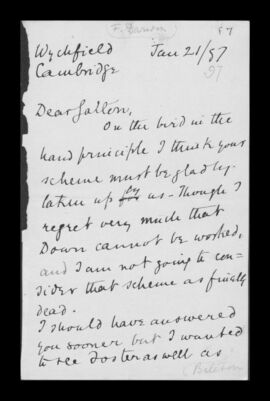 (F. Darwin)
57
Wychfield Jan 21/97
Cambridge 97
Dear Galton,
On the bird in the
hand principle I think your
scheme must be gladly
taken up by us - though I
regret very much that
Down cannot be worked,
and I am not going to con-
sider that scheme as finally
dead.
I should have answered
you sooner but I wanted
to see Foster as well as
(Bateson